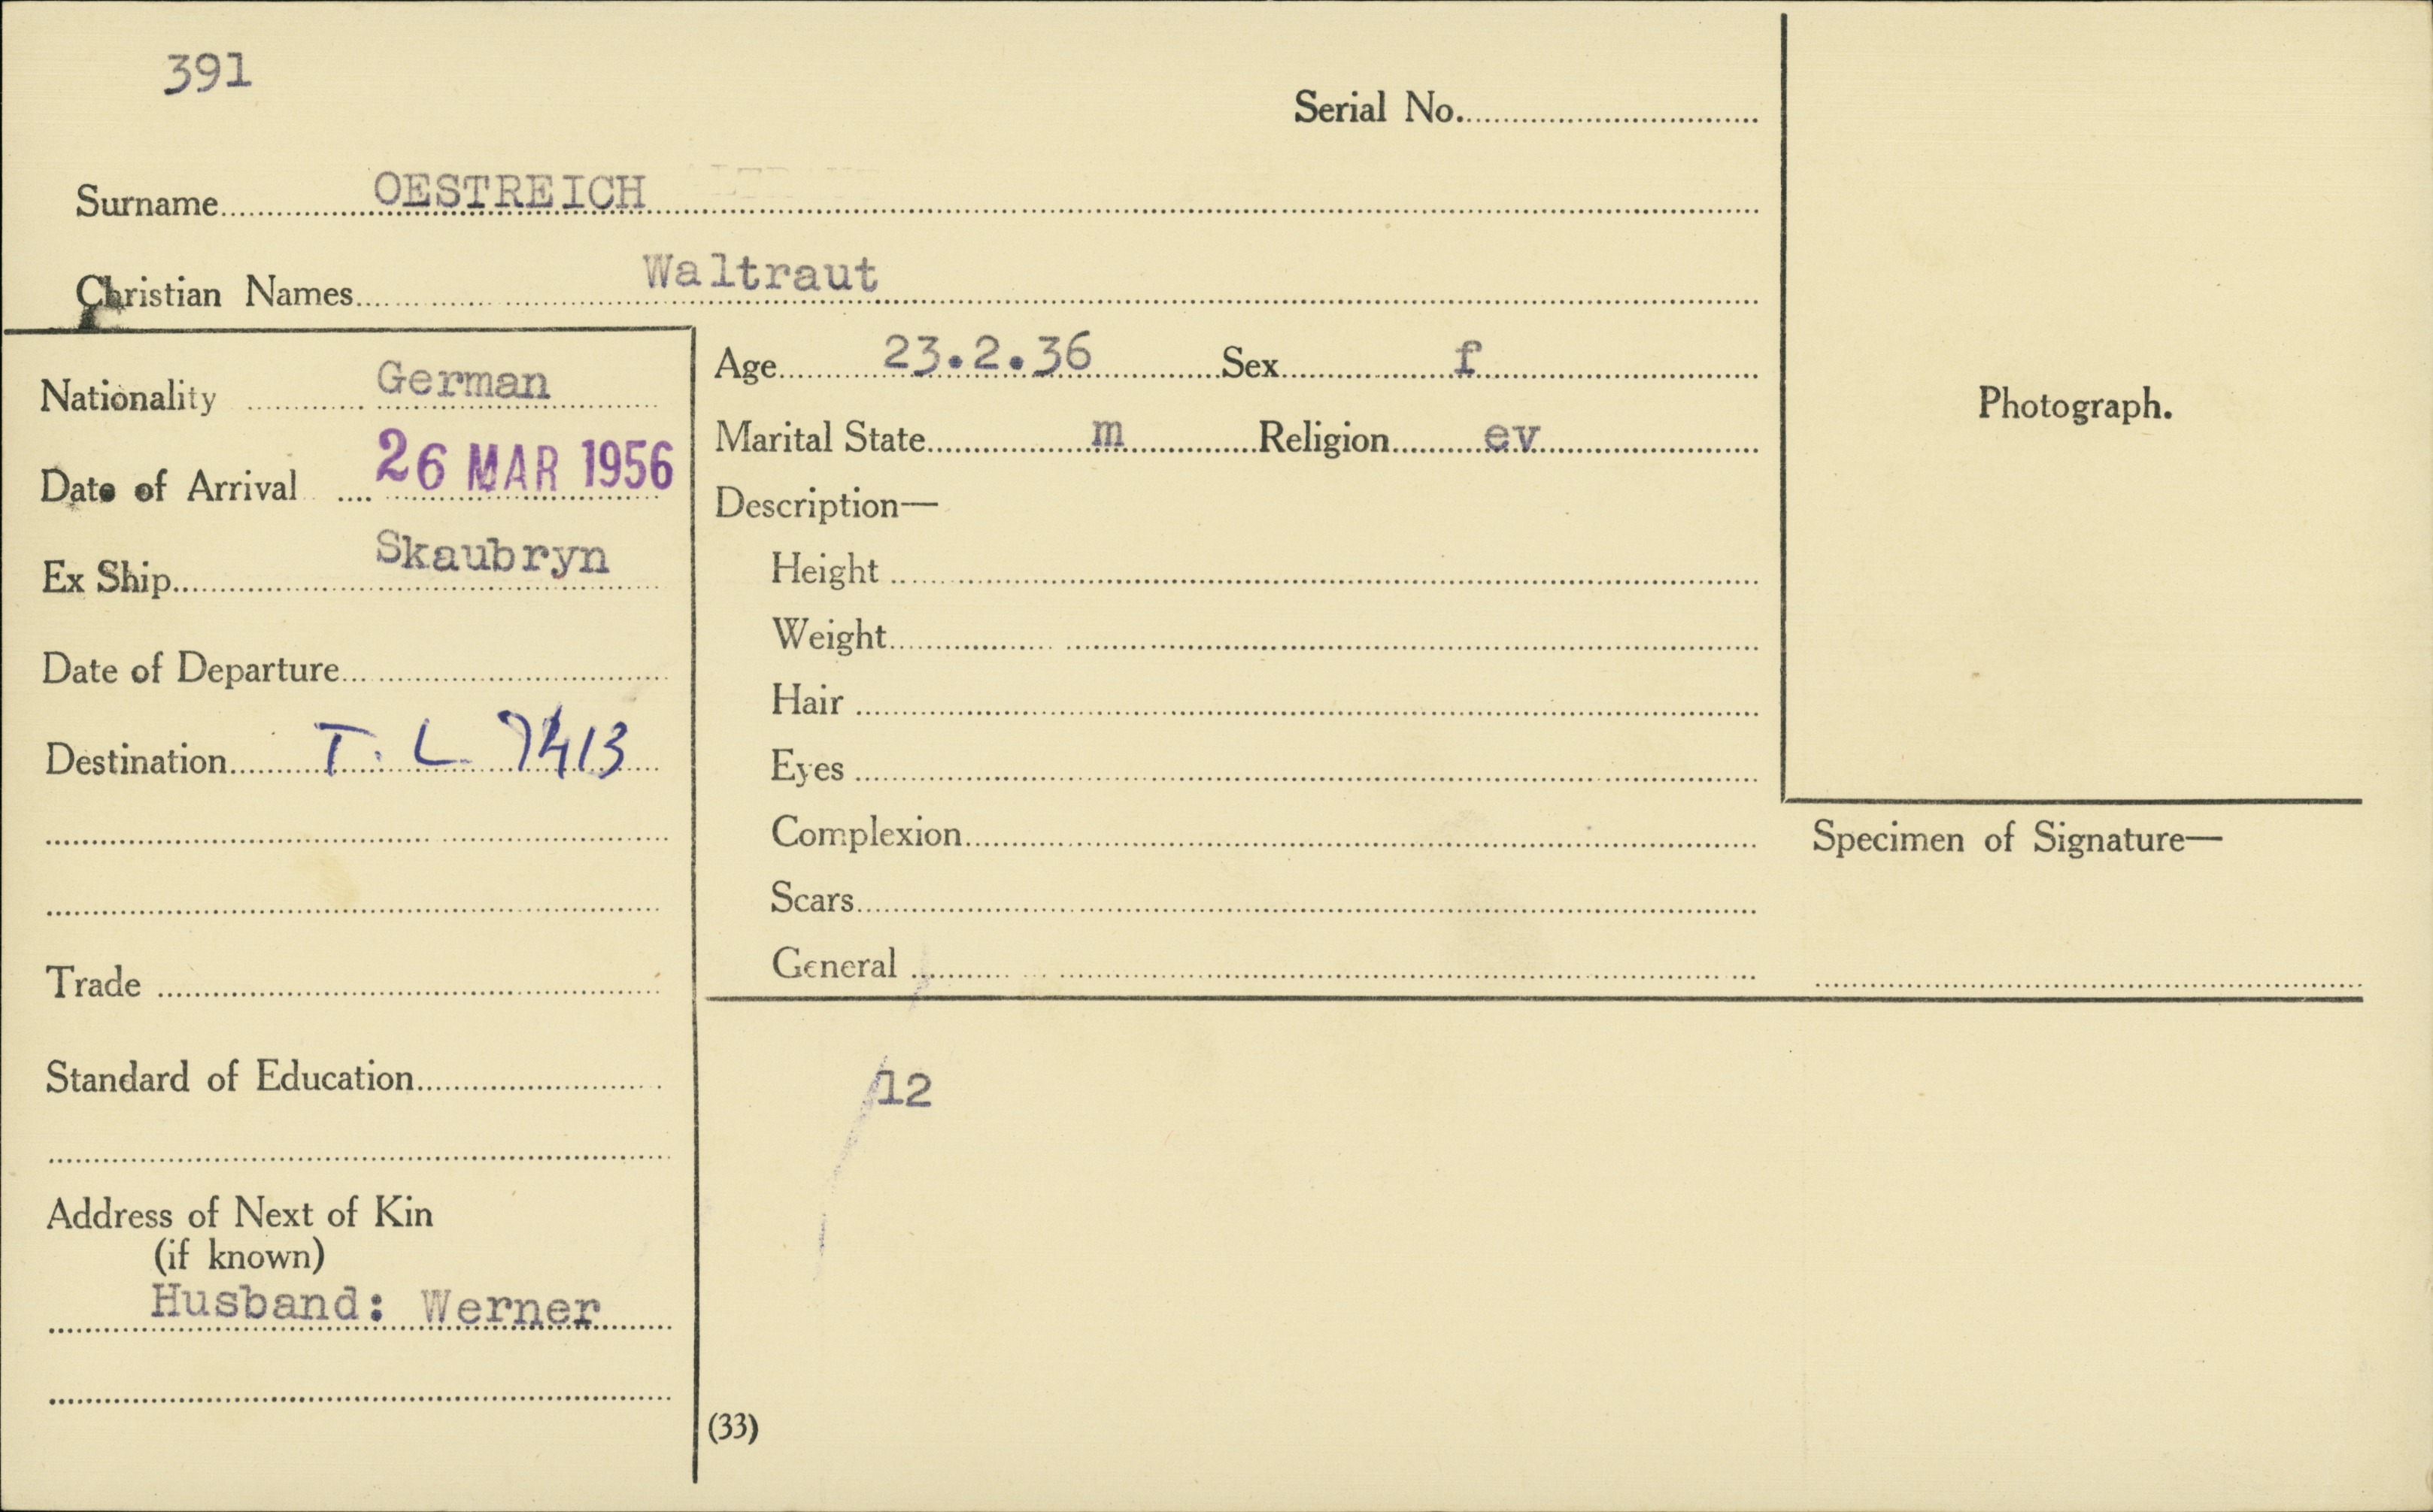 391
Serial No.
Surname OESTREICH
Christian Names Waltraut
Nationality German
Date of Arrival 26 MAR 1956
Ex Ship Skaubryn
Date of Departure
Destination T. L. 7413
Trade
Standard of Education
Address of Next of Kin
(if known)
Husband: Werner
Age 23.2.36 Sex f
Marital State m Religion ev
Description—
Height
Weight
Hair
Eyes
Complexion
Scars
General
/12
(33)
Photograph.
Specimen of Signature—